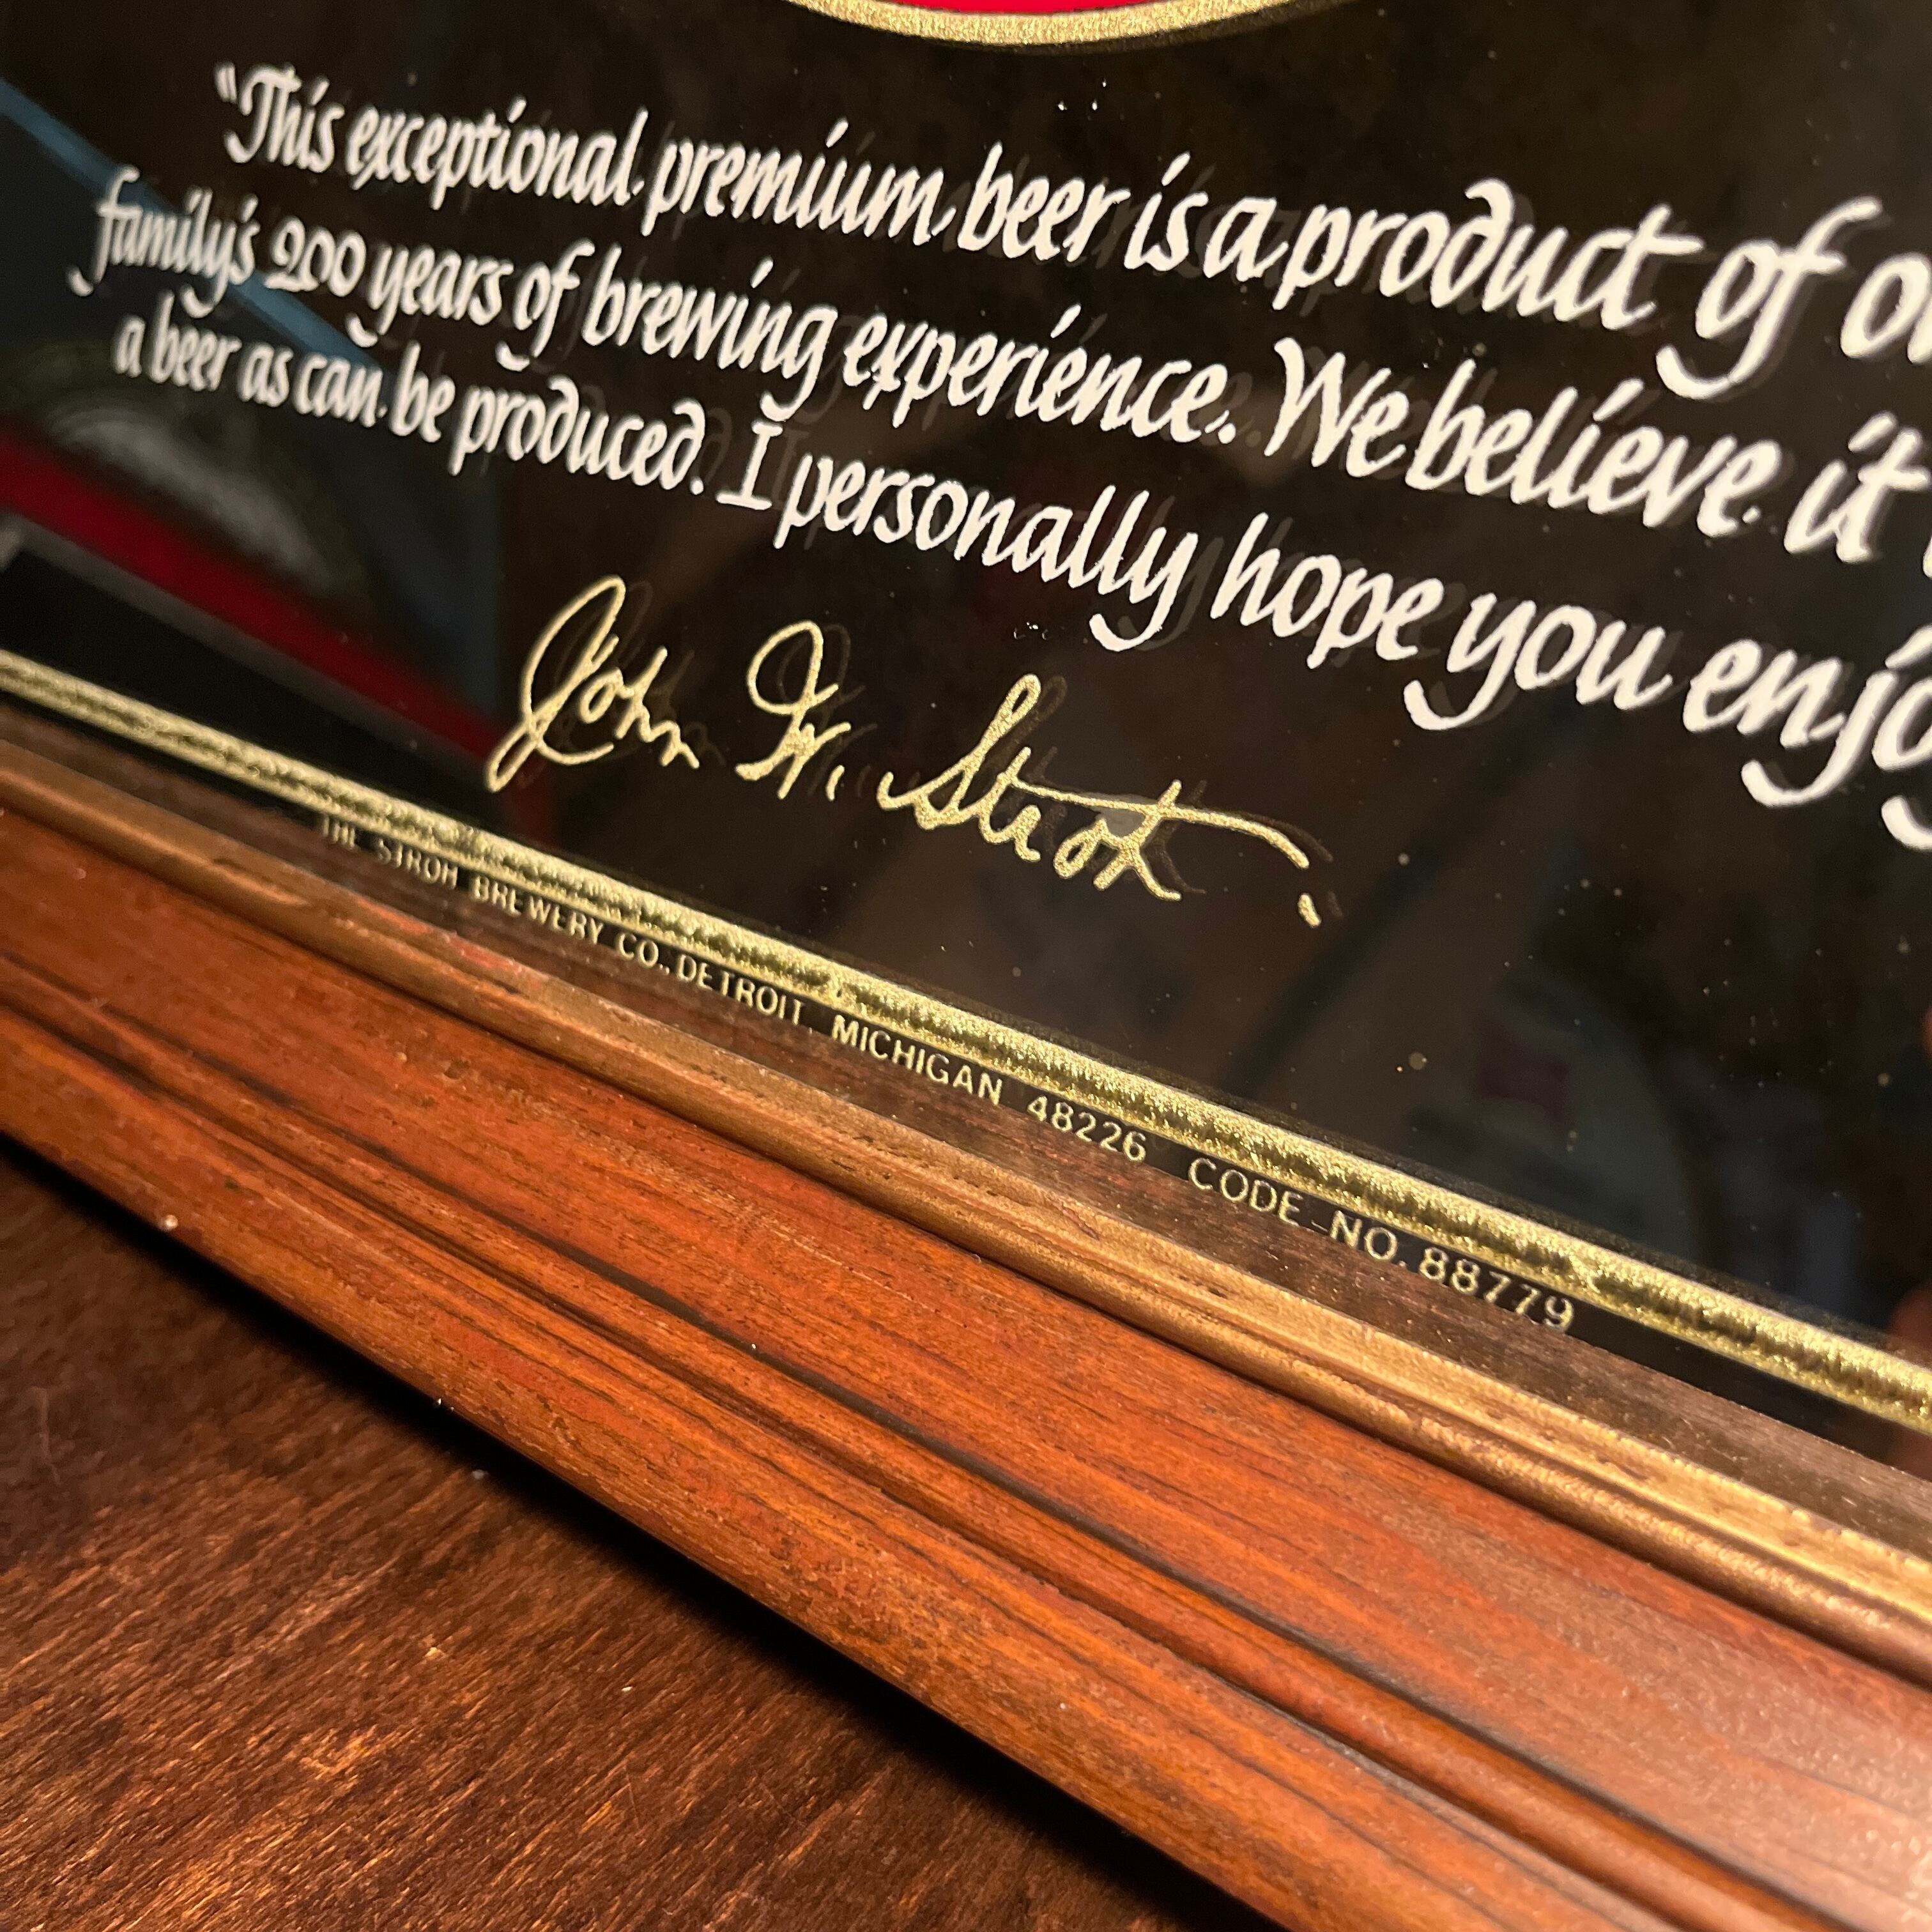 "This exceptional premium beer is a product of
family's 200 years of brewing experience. We believe it
a beer as can be produced. I personally hope you
John W. Stroh
THE STROH BREWERY CO., DETROIT, MICHIGAN 48226 CODE NO. 88779